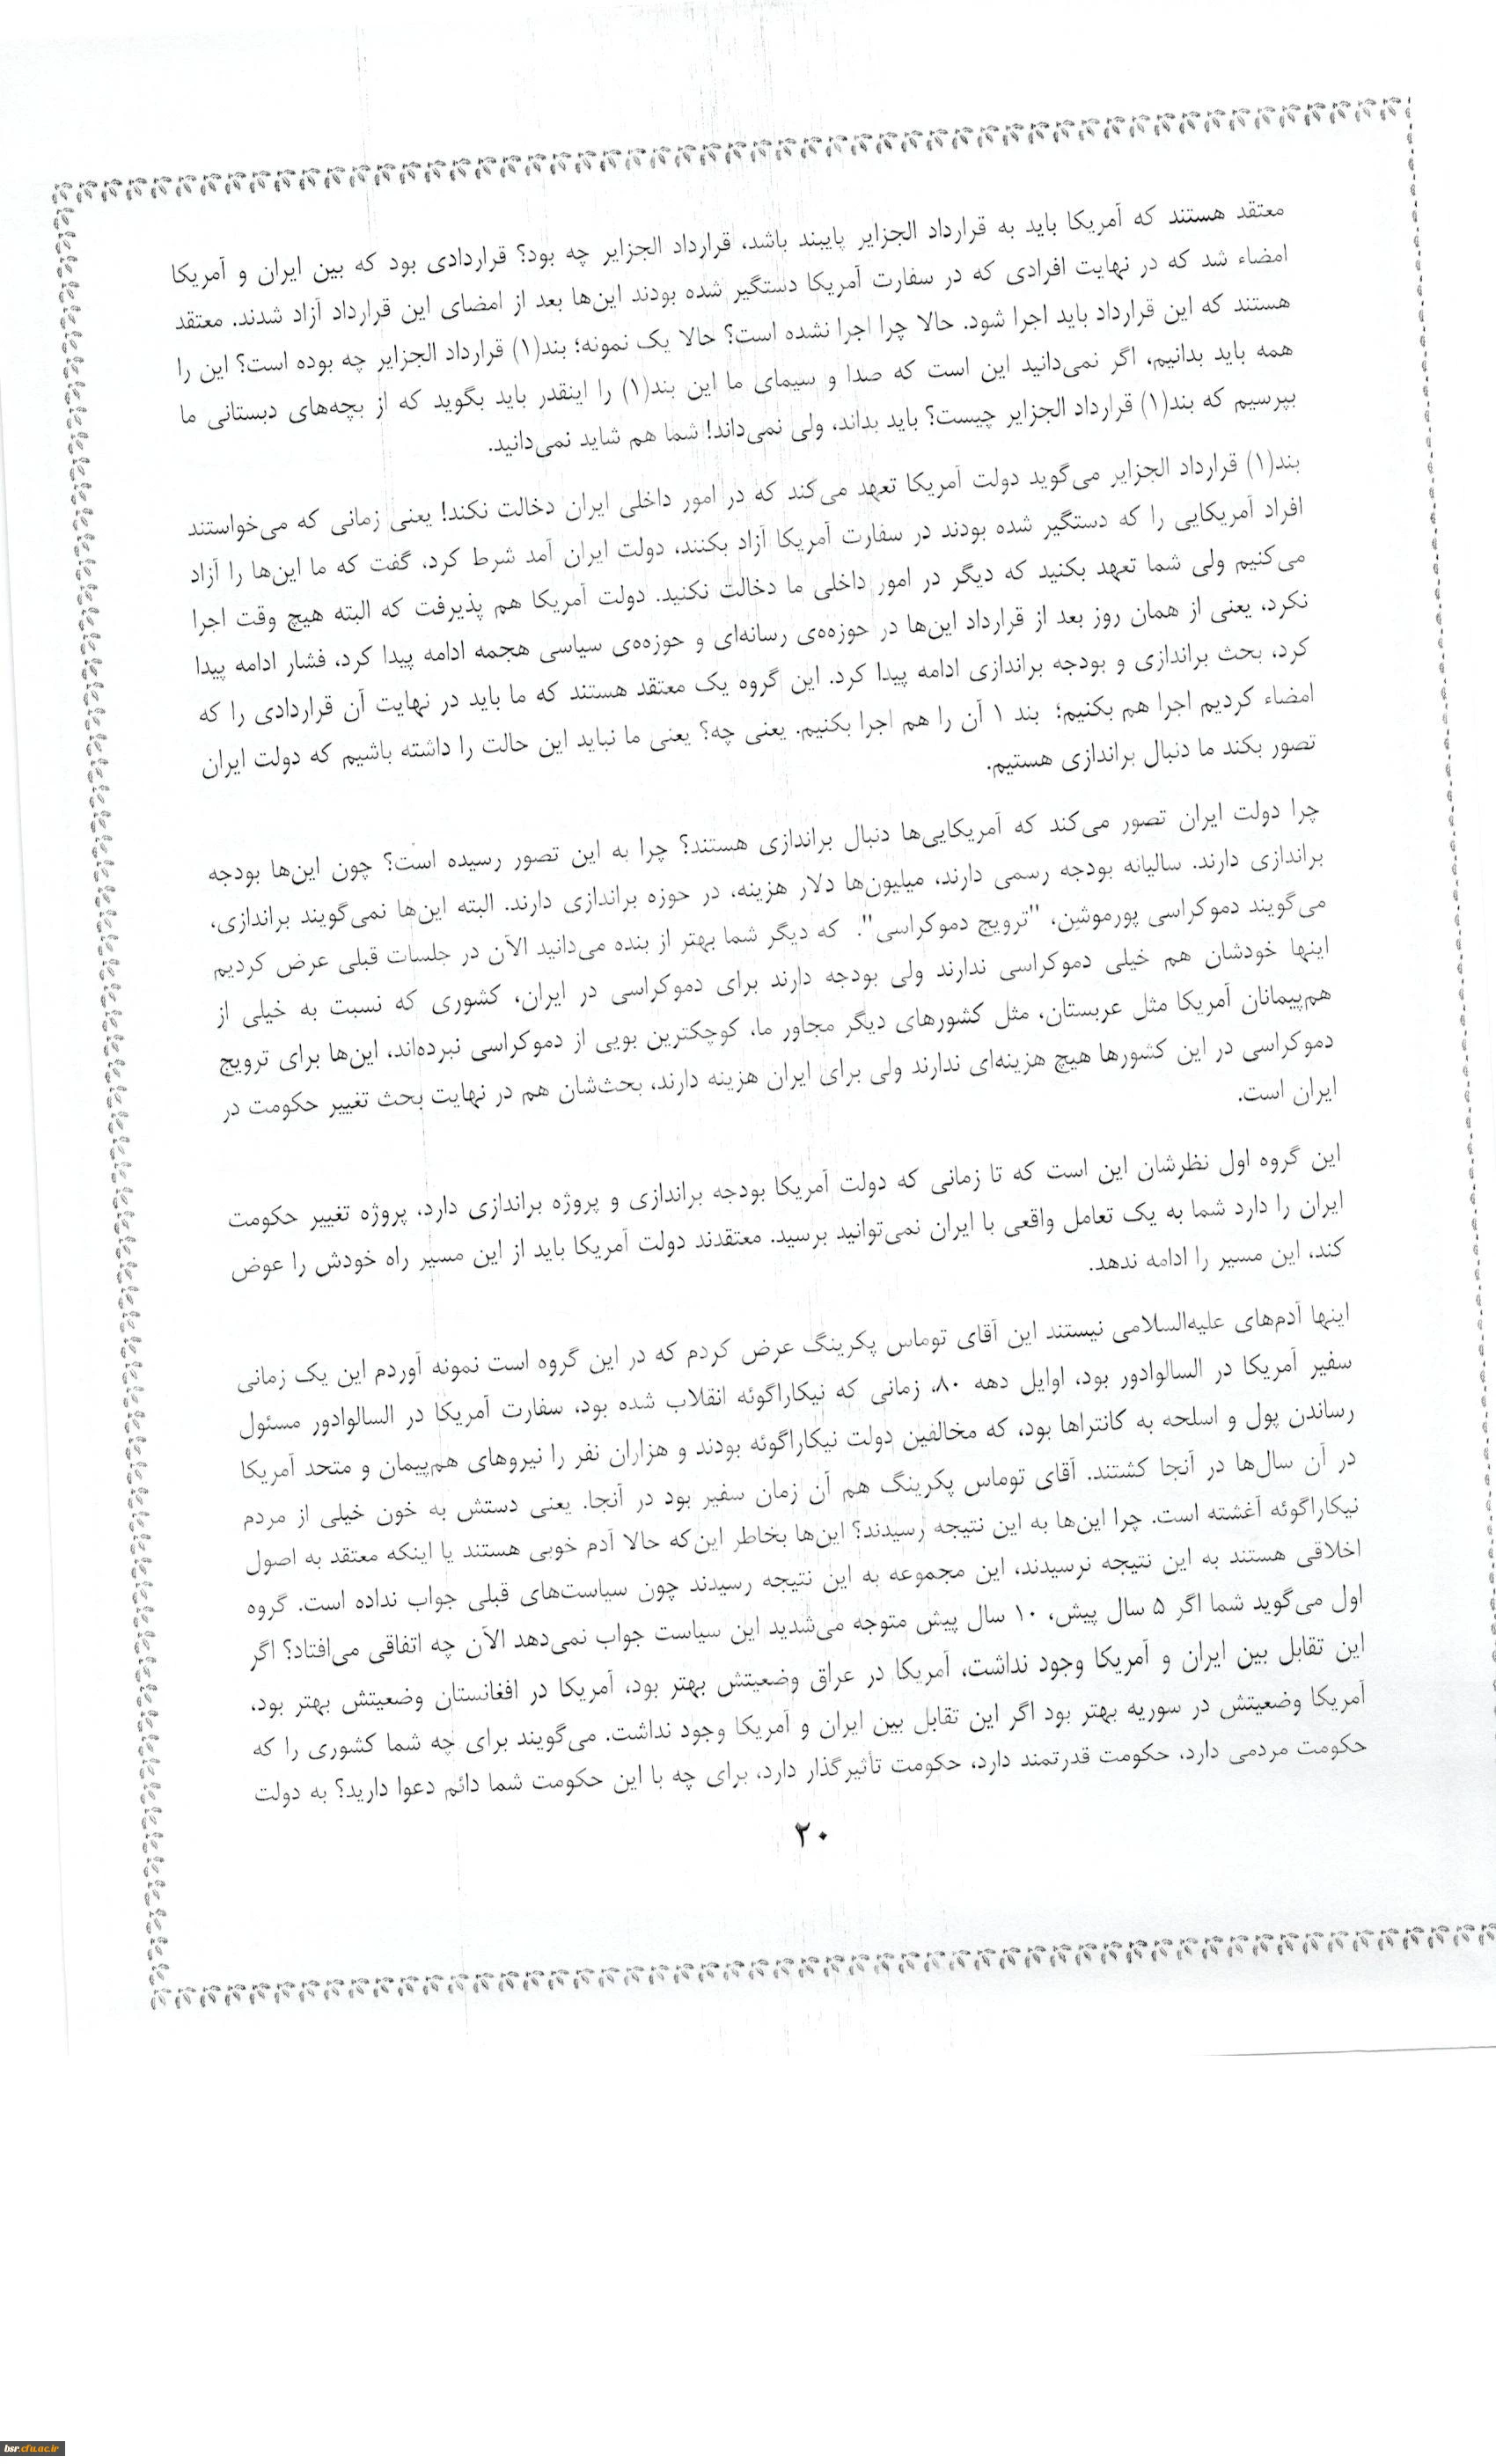 معتقد هستند که آمریکا باید به قرارداد الجزایر پایبند باشد، قرارداد الجزایر چه بود؟ قراردادی بود که بین ایران و آمریکا
امضاء شد که در نهایت افرادی که در سفارت آمریکا دستگیر شده بودند این‌ها بعد از امضای این قرارداد آزاد شدند. معتقد
هستند که این قرارداد باید اجرا شود. حالا چرا اجرا نشده است؟ حالا یک نمونه؛ بند(۱) قرارداد الجزایر چه بوده است؟ این را
همه باید بدانیم، اگر نمی‌دانید این است که صدا و سیمای ما این بند(۱) را اینقدر باید بگوید که از بچه‌های دبستانی ما
بپرسیم که بند(۱) قرارداد الجزایر چیست؟ باید بداند، ولی نمی‌داند! شما هم شاید نمی‌دانید.
بند(۱) قرارداد الجزایر می‌گوید دولت آمریکا تعهد می‌کند که در امور داخلی ایران دخالت نکند! یعنی زمانی که می‌خواستند
افراد آمریکایی را که دستگیر شده بودند در سفارت آمریکا آزاد بکنند، دولت ایران آمد شرط کرد، گفت که ما این‌ها را آزاد
می‌کنیم ولی شما تعهد بکنید که دیگر در امور داخلی ما دخالت نکنید. دولت آمریکا هم پذیرفت که البته هیچ وقت اجرا
نکرد، یعنی از همان روز بعد از قرارداد این‌ها در حوزه‌ی رسانه‌ای و حوزه‌ی سیاسی هجمه ادامه پیدا کرد، فشار ادامه پیدا
کرد، بحث براندازی و بودجه براندازی ادامه پیدا کرد. این گروه یک معتقد هستند که ما باید در نهایت آن قراردادی را که
امضاء کردیم اجرا هم بکنیم؛ بند ۱ آن را هم اجرا بکنیم. یعنی چه؟ یعنی ما نباید این حالت را داشته باشیم که دولت ایران
تصور بکند ما دنبال براندازی هستیم.
چرا دولت ایران تصور می‌کند که آمریکایی‌ها دنبال براندازی هستند؟ چرا به این تصور رسیده است؟ چون این‌ها بودجه
براندازی دارند. سالیانه بودجه رسمی دارند، میلیون‌ها دلار هزینه، در حوزه براندازی دارند. البته این‌ها نمی‌گویند براندازی،
می‌گویند دموکراسی پورموشِن، "ترویج دموکراسی". که دیگر شما بهتر از بنده می‌دانید الآن در جلسات قبلی عرض کردیم
اینها خودشان هم خیلی دموکراسی ندارند ولی بودجه دارند برای دموکراسی در ایران، کشوری که نسبت به خیلی از
هم‌پیمانان آمریکا مثل عربستان، مثل کشورهای دیگر مجاور ما، کوچکترین بویی از دموکراسی نبرده‌اند، این‌ها برای ترویج
دموکراسی در این کشورها هیچ هزینه‌ای ندارند ولی برای ایران هزینه دارند، بحث‌شان هم در نهایت بحث تغییر حکومت در
ایران است.
این گروه اول نظرشان این است که تا زمانی که دولت آمریکا بودجه براندازی و پروژه براندازی دارد، پروژه تغییر حکومت
ایران را دارد شما به یک تعامل واقعی با ایران نمی‌توانید برسید. معتقدند دولت آمریکا باید از این مسیر راه خودش را عوض
کند، این مسیر را ادامه ندهد.
اینها آدم‌های علیه‌السلامی نیستند این آقای توماس پکرینگ عرض کردم که در این گروه است نمونه آوردم این یک زمانی
سفیر آمریکا در السالوادور بود، اوایل دهه ۸۰، زمانی که نیکاراگوئه انقلاب شده بود، سفارت آمریکا در السالوادور مسئول
رساندن پول و اسلحه به کانتراها بود، که مخالفین دولت نیکاراگوئه بودند و هزاران نفر را نیروهای هم‌پیمان و متحد آمریکا
در آن سال‌ها در آنجا کشتند. آقای توماس پکرینگ هم آن زمان سفیر بود در آنجا. یعنی دستش به خون خیلی از مردم
نیکاراگوئه آغشته است. چرا این‌ها به این نتیجه رسیدند؟ این‌ها بخاطر این‌که حالا آدم خوبی هستند یا اینکه معتقد به اصول
اخلاقی هستند به این نتیجه نرسیدند، این مجموعه به این نتیجه رسیدند چون سیاست‌های قبلی جواب نداده است. گروه
اول می‌گوید شما اگر ۵ سال پیش، ۱۰ سال پیش متوجه می‌شدید این سیاست جواب نمی‌دهد الآن چه اتفاقی می‌افتاد؟ اگر
این تقابل بین ایران و آمریکا وجود نداشت، آمریکا در عراق وضعیتش بهتر بود، آمریکا در افغانستان وضعیتش بهتر بود،
آمریکا وضعیتش در سوریه بهتر بود اگر این تقابل بین ایران و آمریکا وجود نداشت. می‌گویند برای چه شما کشوری را که
حکومت مردمی دارد، حکومت قدرتمند دارد، حکومت تأثیرگذار دارد، برای چه با این حکومت شما دائم دعوا دارید؟ به دولت
۲۰
bsr.cfu.ac.ir